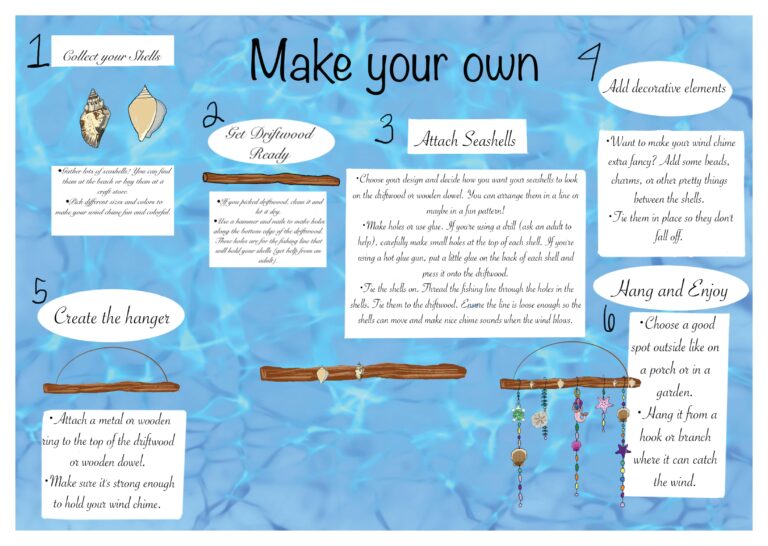 Make your own
1
Collect your Shells
•Gather lots of seashells! You can find
them at the beach or buy them at a
craft store.
•Pick different sizes and colors to
make your wind chime fun and colorful.
2
Get Driftwood
Ready
•If you picked driftwood, clean it and
let it dry.
•Use a hammer and nails to make holes
along the bottom edge of the driftwood.
These holes are for the fishing line that
will hold your shells (get help from an
adult).
3
Attach Seashells
•Choose your design and decide how you want your seashells to look
on the driftwood or wooden dowel. You can arrange them in a line or
maybe in a fun pattern!
•Make holes or use glue. If you're using a drill (ask an adult to
help), carefully make small holes at the top of each shell. If you're
using a hot glue gun, put a little glue on the back of each shell and
press it onto the driftwood.
•Tie the shells on. Thread the fishing line through the holes in the
shells. Tie them to the driftwood. Ensure the line is loose enough so the
shells can move and make nice chime sounds when the wind blows.
4
Add decorative elements
•Want to make your wind chime
extra fancy? Add some beads,
charms, or other pretty things
between the shells.
•Tie them in place so they don't
fall off.
5
Create the hanger
•Attach a metal or wooden
ring to the top of the driftwood
or wooden dowel.
•Make sure it's strong enough
to hold your wind chime.
6
Hang and Enjoy
•Choose a good
spot outside like on
a porch or in a
garden.
•Hang it from a
hook or branch
where it can catch
the wind.